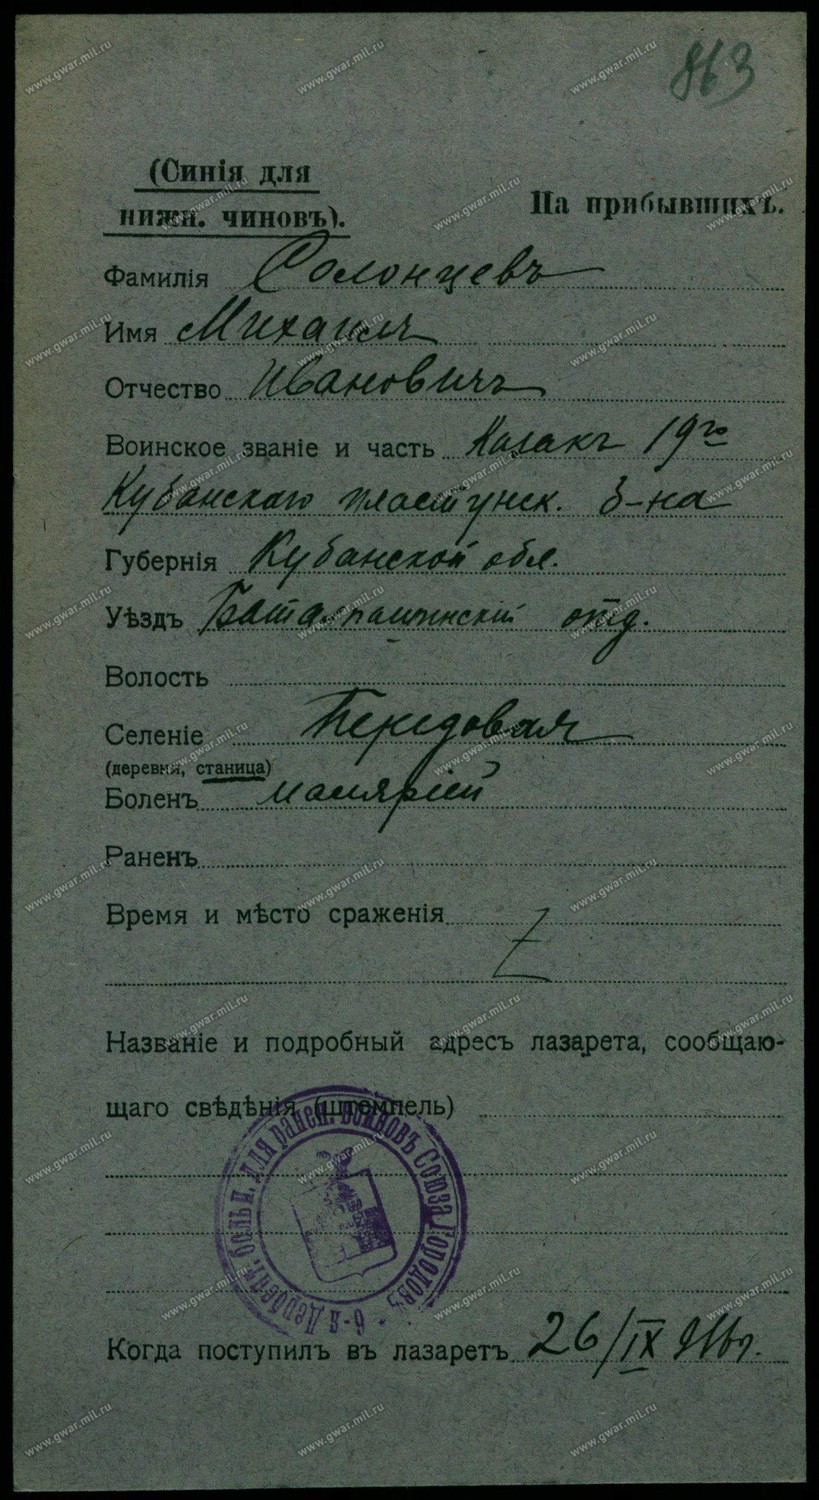 863
(Синія для
нижн. чиновъ).
На прибывшихъ.
Фамилія Солонцевъ
Имя Михаилъ
Отчество Ивановичъ
Воинское званіе и часть Казакъ 19го
Кубанскаго пластунск. б-на
Губернія Кубанской обл.
Уѣздъ Баталпашинскій отд.
Волость
Селеніе Передовая
(деревня, станица)
Боленъ маляріей
Раненъ
Время и мѣсто сраженія
Z
Названіе и подробный адресъ лазарета, сообщаю-
щаго свѣдѣнія (штемпель)
6-я Дербент. больн. для ранен. воиновъ Союза Городовъ
Когда поступилъ въ лазаретъ 26/IX 916г.
www.gwar.mil.ru